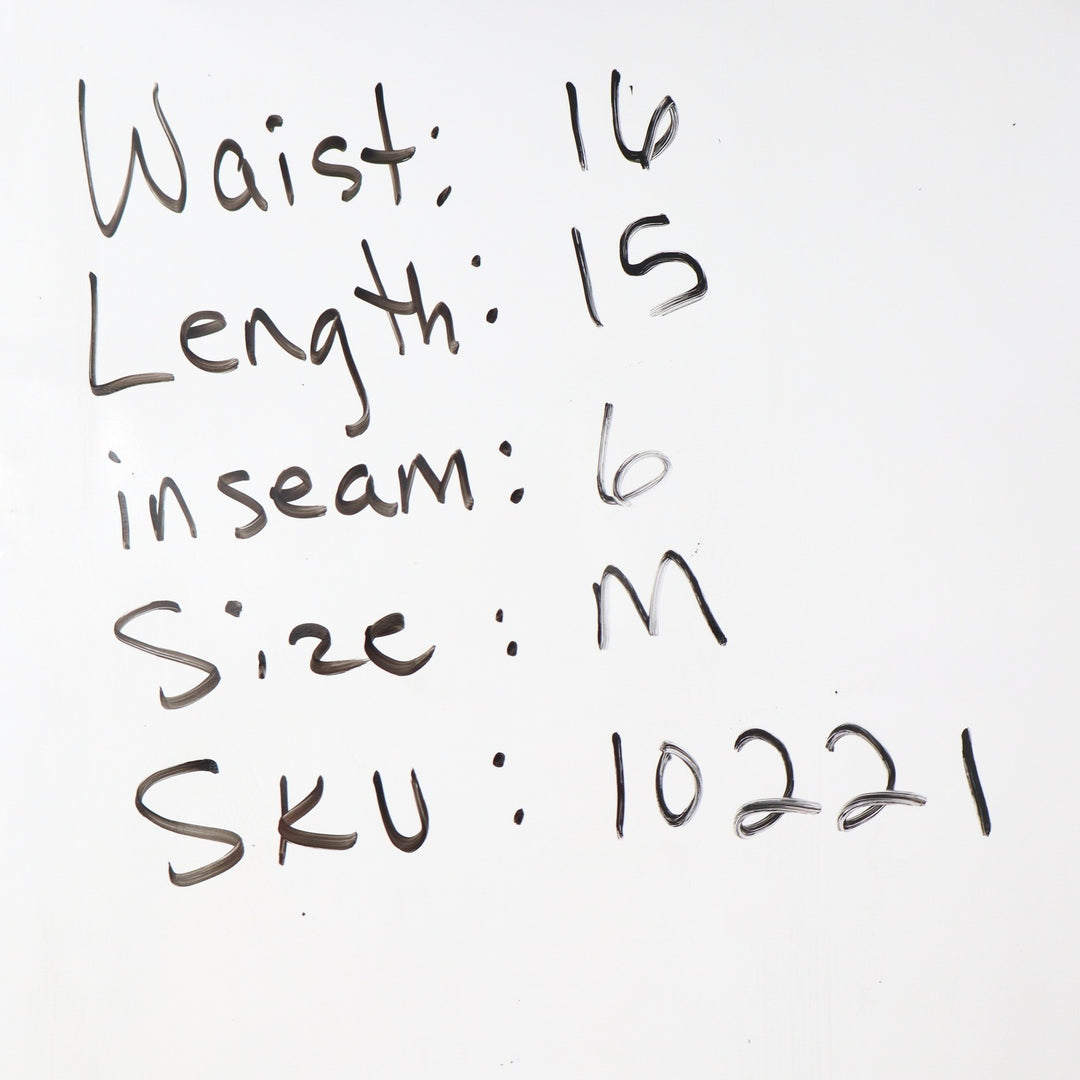 Waist: 16
Length: 15
inseam: 6
Size: M
SKU: 10221